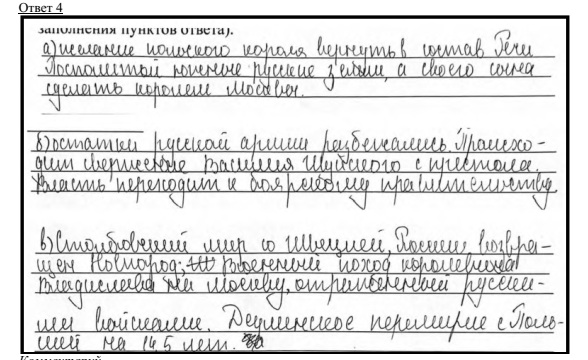 Ответ 4
заполнения пунктов ответа).
а) желание польского короля вернуть в состав Речи
Посполитой южные русские земли, а своего сына
сделать королем Москвы.
б) остатки русской армии разбежались. Происхо-
дит свержение Василия Шуйского с престола.
Власть переходит к боярскому правительству
в) Столбовский мир со Швецией, России возвра-
щен Новгород; Военный поход королевича
Владислава на Москву, отраженный русски-
ми войсками. Деулинское перемирие с Поль-
шей на 14,5 лет.
Комментарий